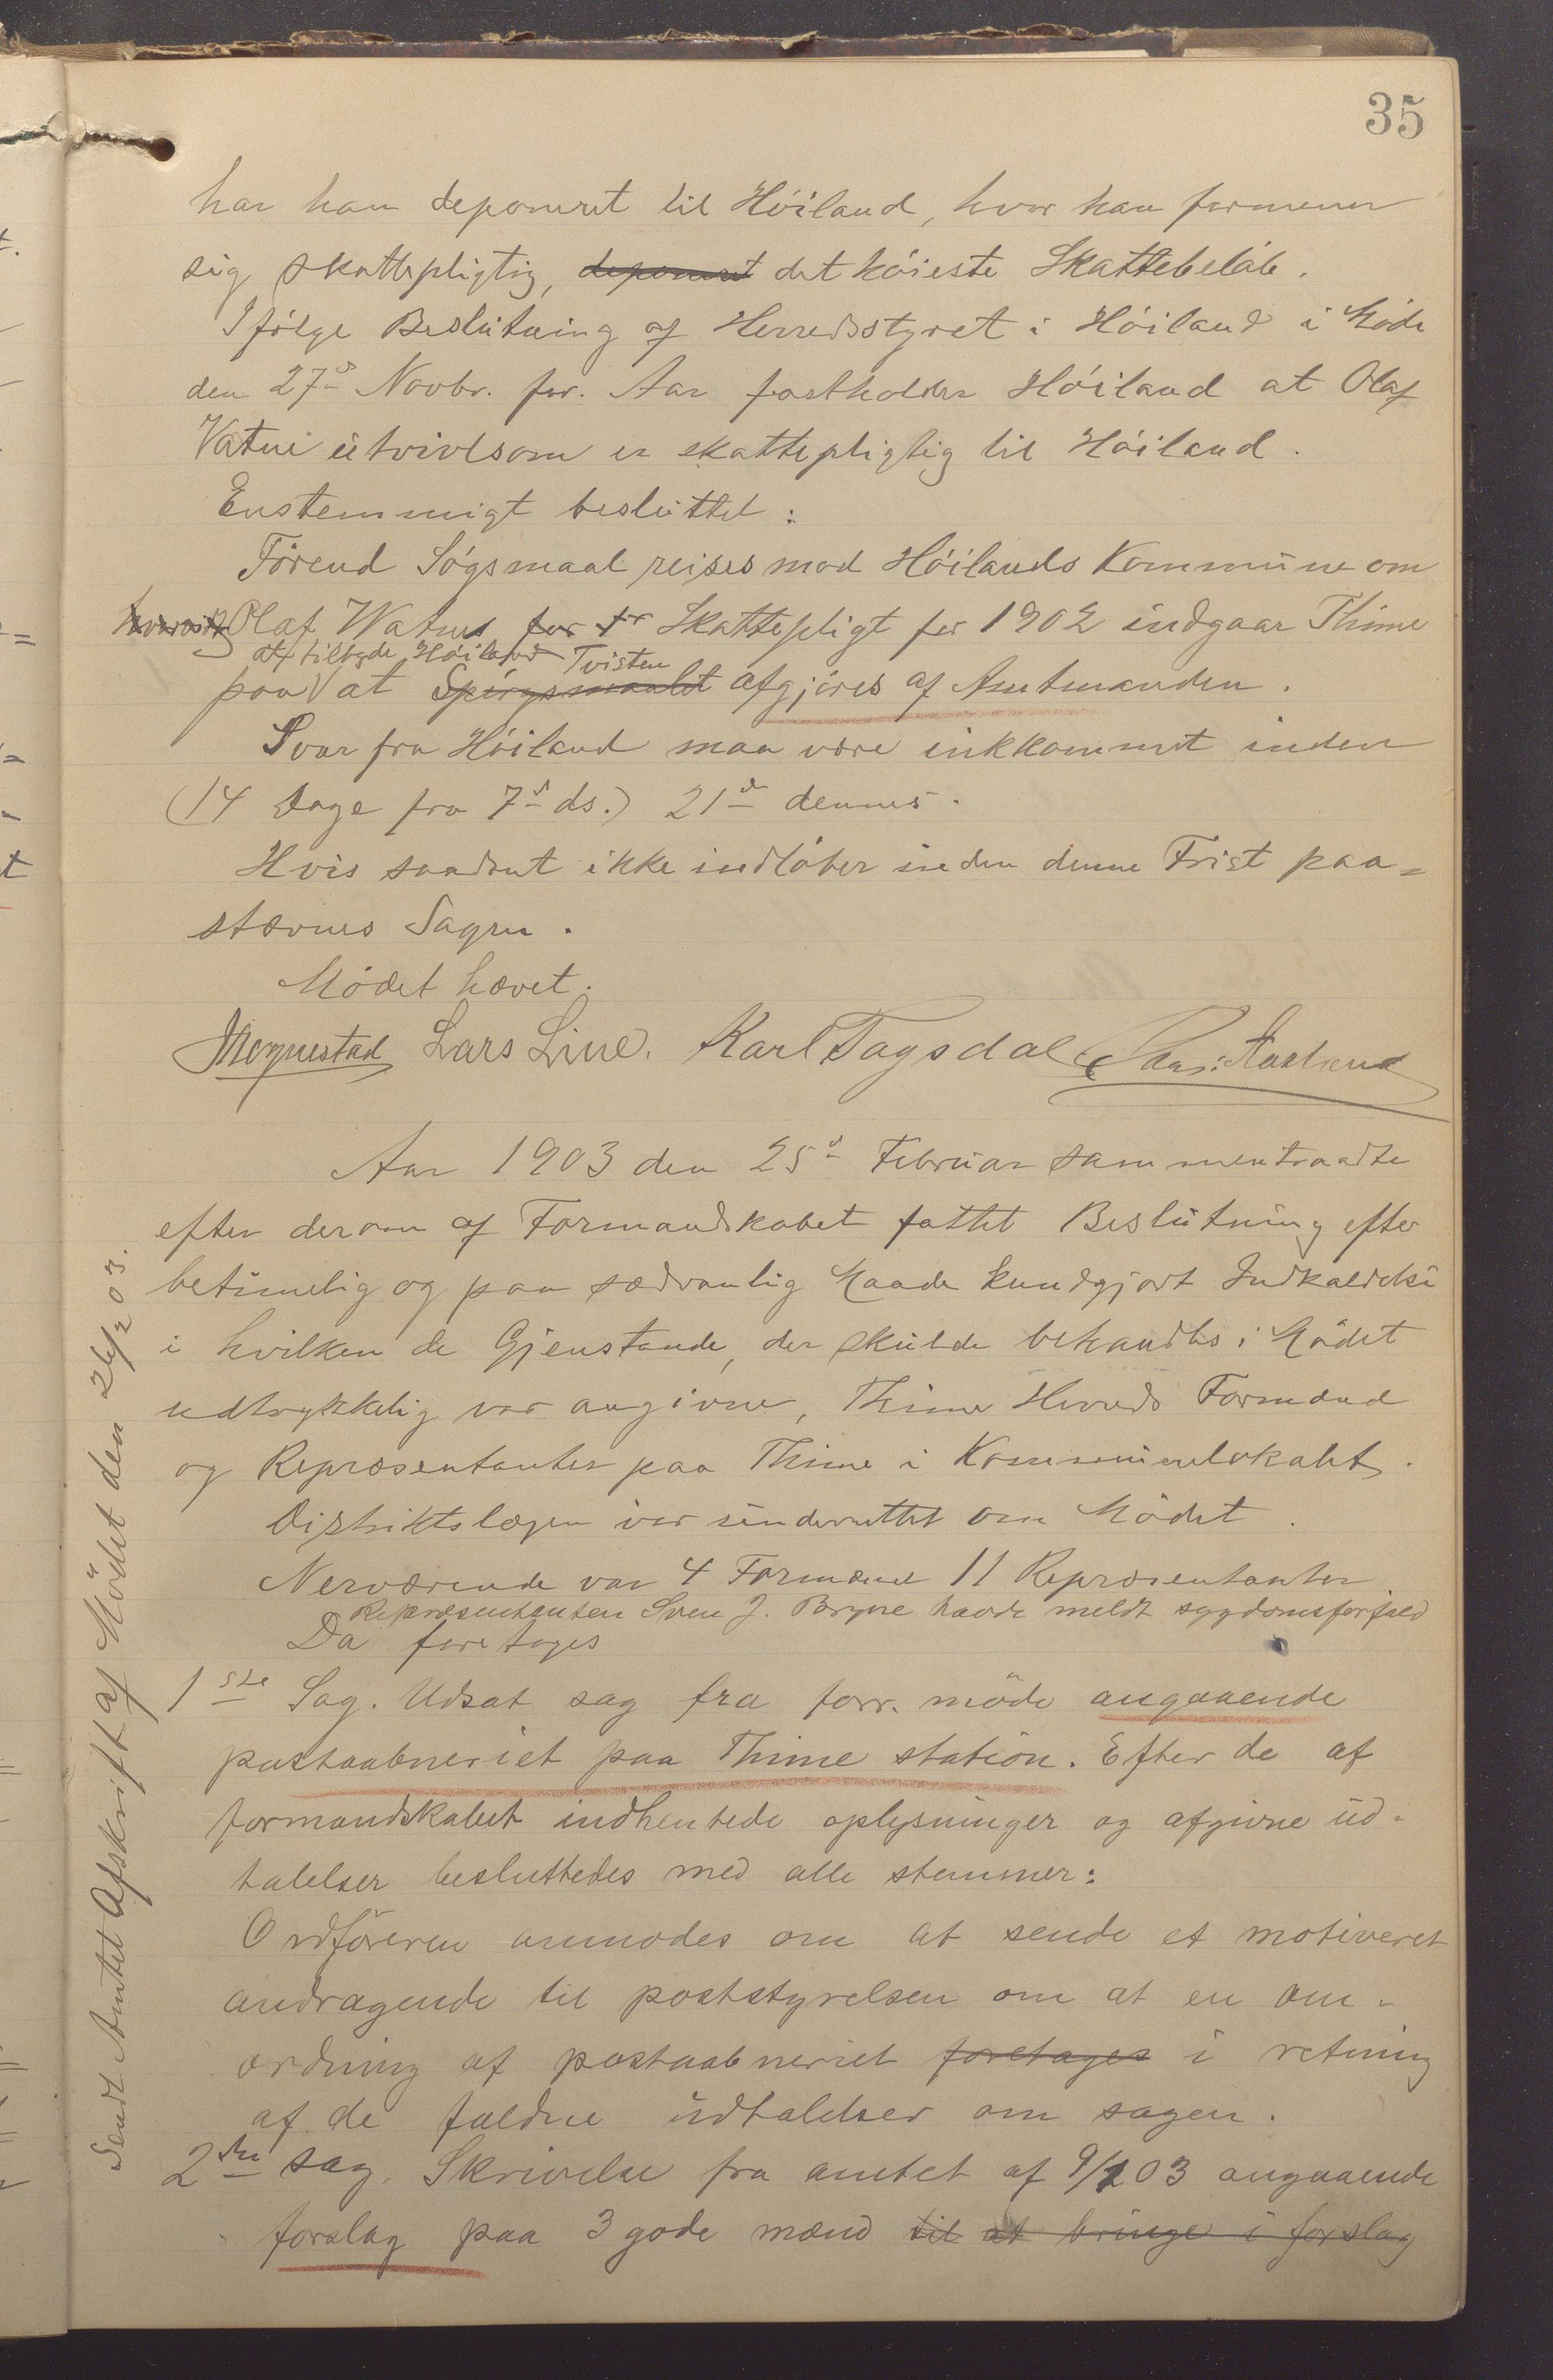 35
har han deponeret til Höiland, hvor han formener
sig skattepligtig, deponeret det höieste Skattebelöb.
Ifölge Beslutning af Herredsstyret i Höiland i Möde
den 27de Novbr. for. Aar fastholder Höiland at Olaf
Vatne utvivlsom er skattepligtig til Höiland.
Enstemmigt besluttet:
Förend Sögsmaal reises mod Höilands Kommune om
Olaf Watnes for Skattepligt for 1902 indgaar Thime
at tilbyde Höiland Tvisten
paa at Spörgsmaalet afgjöres af Amtmanden.
Svar fra Höiland maa være inkkommet inden
(14 Dage fra 7de ds.) 21de dennes.
Hvis saadant ikke indlöber inden denne Frist paa=
stævnes Sagen.
Mödet hævet.
Lars Line. Karl Tagsdal
Aar 1903 den 25de Februar sammentraadte
efter derom af Formandskabet fattet Beslutning efter
betimelig og paa sædvanlig Maade kundgjort Indkaldelse
i hvilken de Gjenstande, der skulde behandles i Mödet
udtrykkelig var angivne, Thime Herreds Formænd
og Repræsentanter paa Thime i Kommunelokalet.
Distriktslægen var underrettet om Mödet.
Nerværende var 4 Formænd 11 Repræsentanter
Repræsentanten Sven J. Bryne havde meldt sygdomsforfald
Da foretages
1ste Sag. Udsat sag fra forr. möde angaaende
postaabneriet paa Thime station. Efter de af
formandskabet indhentede oplysninger og afgivne ud-
talelser besluttedes med alle stemmer:
Ordföreren anmodes om at sende et motiveret
andragende til poststyrelsen om at en om-
ordning af postaabneriet foretages i retning
af de faldne udtalelser om sagen.
2den sag. Skrivelse fra amtet af 9/2 03 angaaende
forslag paa 3 gode mænd til at bringe i forslag
Sendt Amtet Afskrift af Mödet den 26/2 03.